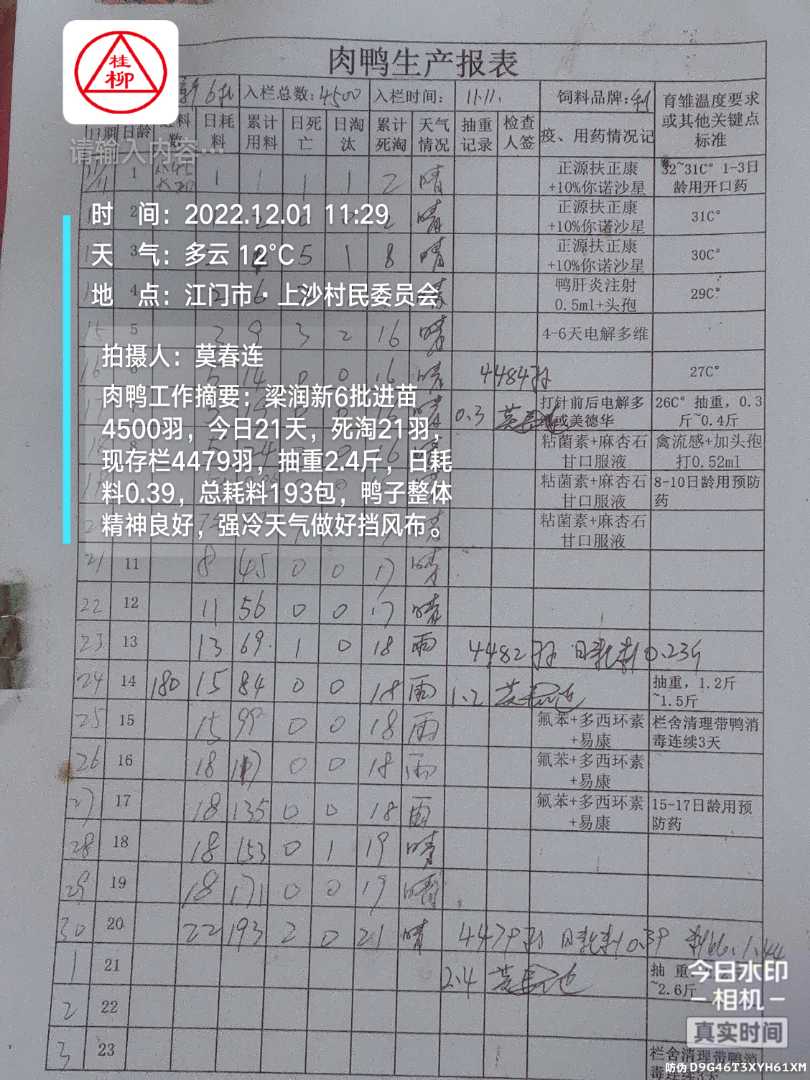 肉鸭生产报表
桂柳
6批 入栏总数:4500 入栏时间: 11.11. 饲料品牌: 育雏温度要求或其他关键点标准
日期 日龄 料数 日耗料 累计用料 日死亡 日淘汰 累计死淘 天气情况 抽重记录 检查人签 疫、用药情况记
请输入内容...
1 1 1 1 1 2 晴 正源扶正康+10%你诺沙星 32~31C° 1-3日龄用开口药
时 间：2022.12.01 11:29
2 晴 正源扶正康+10%你诺沙星 31C°
天 气：多云 12℃
3 5 1 8 晴 正源扶正康+10%你诺沙星 30C°
地 点：江门市·上沙村民委员会
4 鸭肝炎注射0.5ml+头孢 29C°
15 5 3 9 3 2 16 晴 4-6天电解多维
拍摄人：莫春连
16 4484羽 27C°
肉鸭工作摘要：梁润新6批进苗
4500羽，今日21天，死淘21羽，
现存栏4479羽，抽重2.4斤，日耗
料0.39，总耗料193包，鸭子整体
精神良好，强冷天气做好挡风布。
0.3 打针前后电解多维或美德华 26C° 抽重，0.3斤~0.4斤
粘菌素+麻杏石甘口服液 禽流感+加头孢打0.52ml
粘菌素+麻杏石甘口服液 8-10日龄用预防药
粘菌素+麻杏石甘口服液
21 11 8 45 0 0 17 晴
22 12 11 56 0 0 17 晴
23 13 13 69 1 0 18 雨 4482羽 日耗料0.23斤
24 14 180 15 84 0 0 18 雨 1.2 莫春连 抽重，1.2斤~1.5斤
25 15 15 99 0 0 18 雨 氟苯+多西环素+易康 栏舍清理带鸭消毒连续3天
26 16 18 117 0 0 18 雨 氟苯+多西环素+易康
27 17 18 135 0 0 18 雨 氟苯+多西环素+易康 15-17日龄用预防药
28 18 18 153 0 1 19 晴
29 19 18 171 0 0 19 晴
30 20 22 193 2 0 21 晴 4479羽 日耗料0.39 1.44
1 21 2.4 莫春连 抽重 ~2.6斤
2 22
3 23 栏舍清理带鸭消
今日水印
相机
真实时间
防伪 D9G46T3XYH61XM